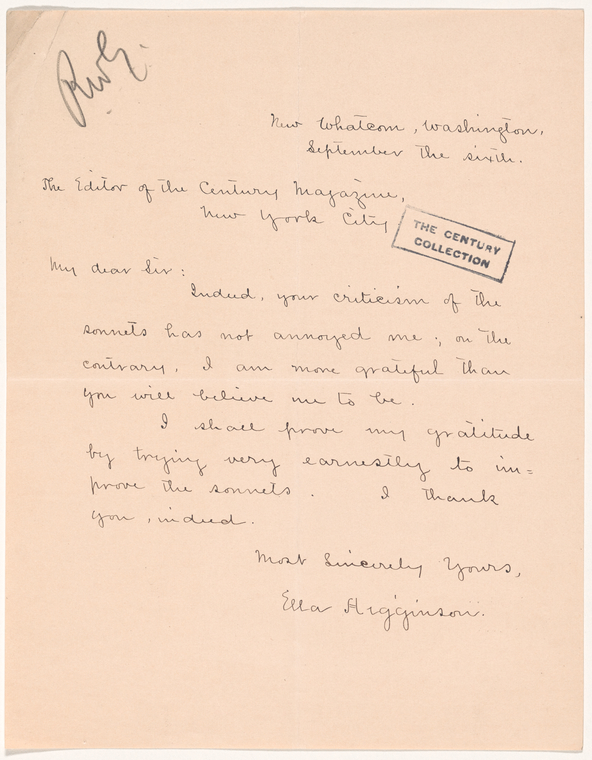 RWG.
New Whatcom, Washington,
September the sixth.
The Editor of the Century Magazine,
New York City
THE CENTURY
COLLECTION
My dear Sir:
Indeed, your criticism of the
sonnets has not annoyed me; on the
contrary, I am more grateful than
you will believe me to be.
I shall prove my gratitude
by trying very earnestly to im=
prove the sonnets. I thank
you, indeed.
Most Sincerely Yours,
Ella Higginson.